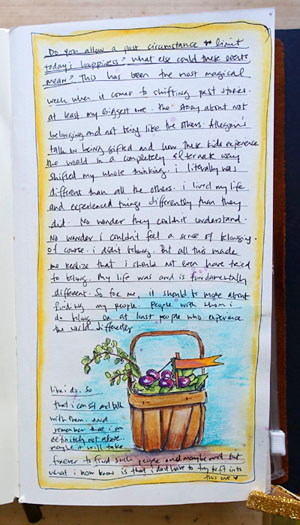 Do you allow a past circumstance to limit
today's happiness? What else could these events
mean? This has been the most magical
week when it comes to shifting past stories.
at least my biggest one. the story about not
belonging and not being like the others.
talk on being gifted and how these kids experience
the world in a completely alternate way
shifted my whole thinking. i literally was
different than all the others. i lived my life
and experienced things differently than they
did. No wonder they couldn't understand.
No wonder i couldn't feel a sense of belonging.
Of course i didn't belong. But all this made
me realize that i should not even have tried
to belong. My life was and is fundamentally
different. So for me, it should be more about
finding my people. People with whom i
do belong. Or at least people who experience
the world differently
like i do. So
that i can sit and talk
with them. and
remember that i am
definitely not alone.
maybe it will take
forever to find such people and maybe not but
what i now know is that i don't have to try to fit into
this one